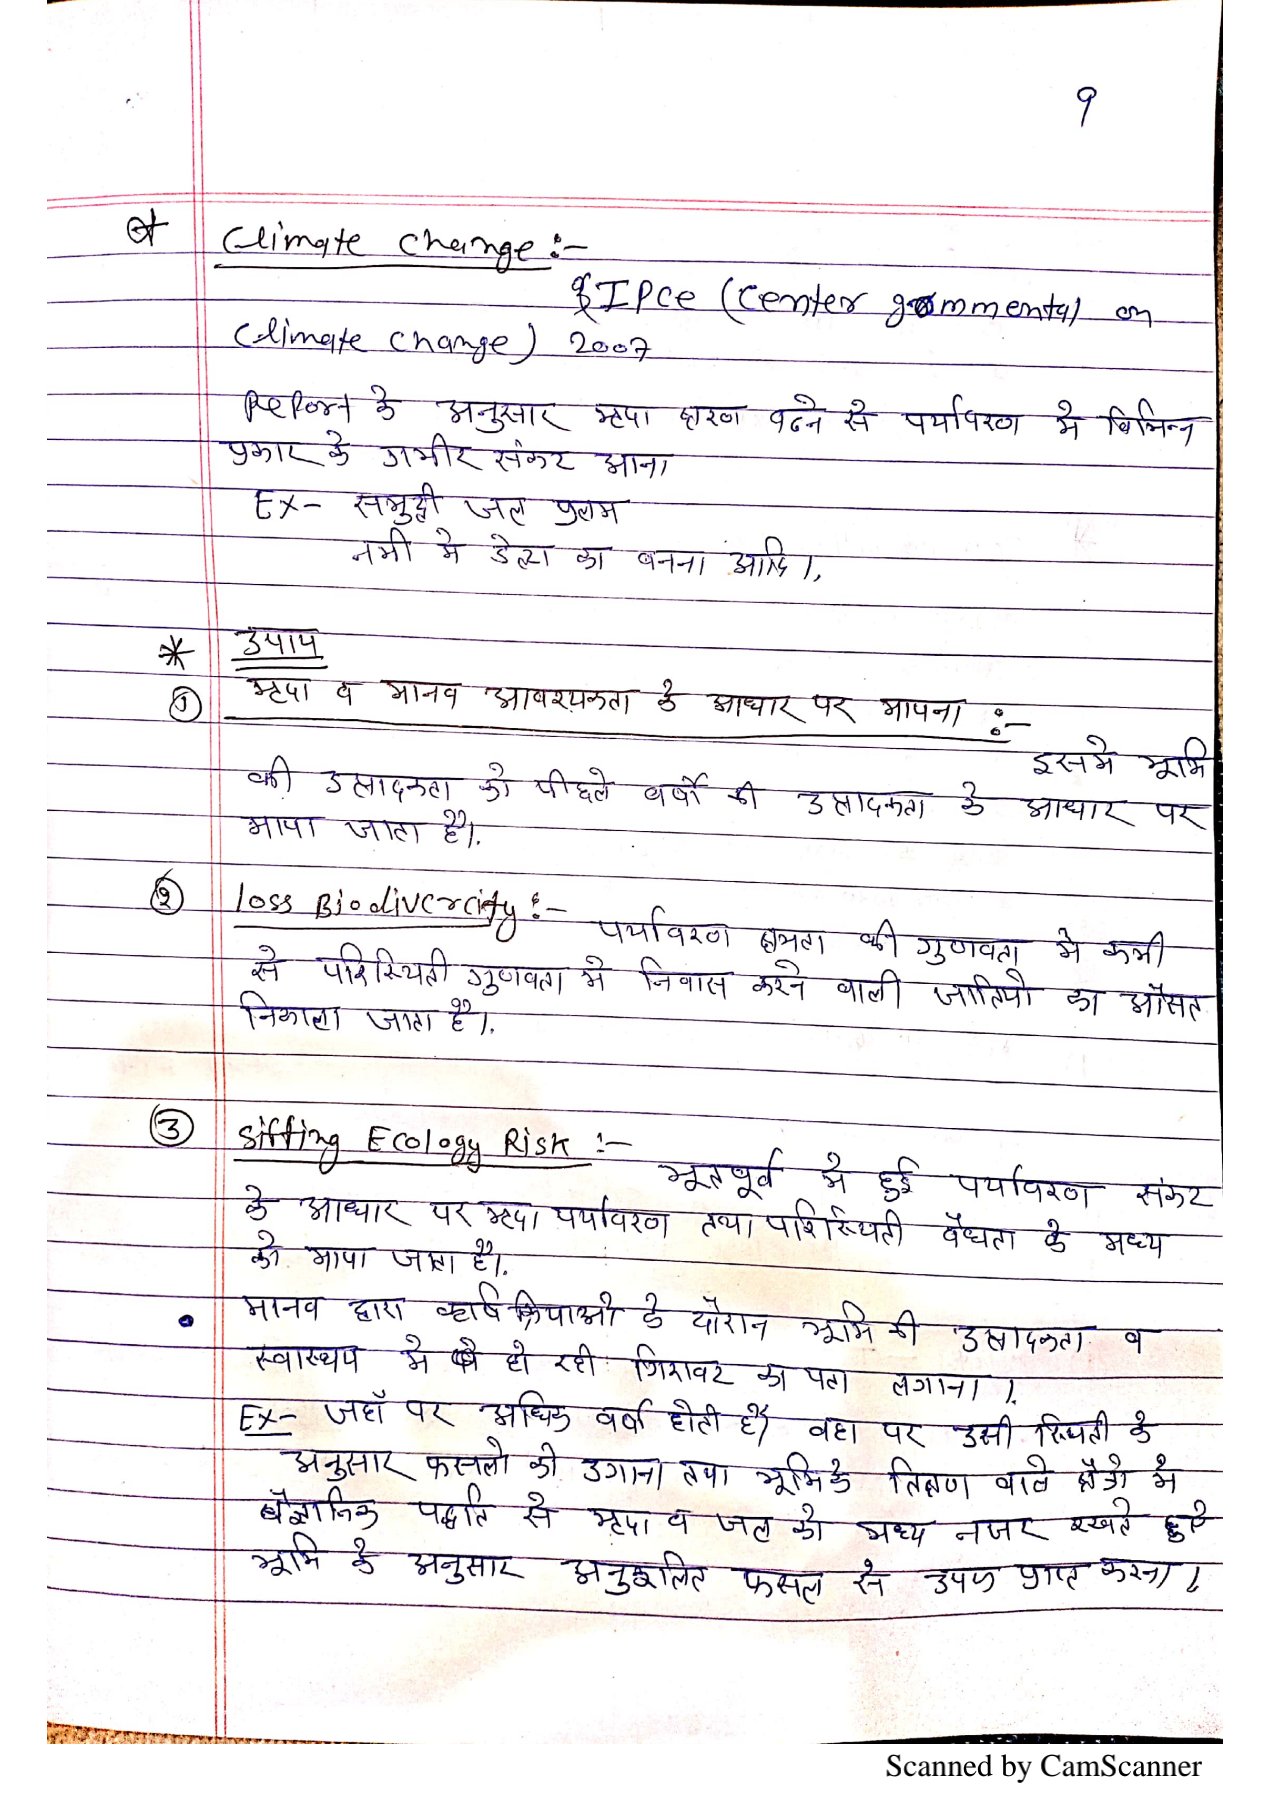 9
Climate change :-
IPCC (Center gommental on
Climate change) 2007
Report के अनुसार मृदा क्षरण बढने से पर्यावरण मे विभिन्न
प्रकार के गंभीर संकट आना
Ex- समुद्री जल प्लाम
नमी मे डेल्टा का बनना आदि।
* उपाय
① मृदा व मानव आवश्यकता के आधार पर मापना :-
इसमे भूमि
की उत्पादकता को पीछले वर्षो की उत्पादकता के आधार पर
मापा जाता है।
② loss Biodivercity :- पर्यावरण क्षमता की गुणवता मे कमी
से परिस्थिती गुणवता मे निवास करने वाली जातियो का औसत
निकाला जाता है।
③ Siffing Ecology Risk :- भूतपूर्व मे हुई पर्यावरण संकट
के आधार पर मृदा पर्यावरण तथा परिस्थिती वैधता के मध्य
को मापा जाता है।
• मानव द्वारा कृषि क्रियाओ के दौरान भूमि की उत्पादकता व
स्वास्थय मे हो रही गिरावट का पता लगाना।
Ex- जहाँ पर अधिक वर्षा होती है वहा पर उसी स्थिती के
अनुसार फसलो को उगाना तथा भूमिके तिक्षण वाले क्षैत्रो मे
वैज्ञानिक पद्धति से मृदा व जल को मध्य नजर रखते हुऐ
भूमि के अनुसार अनुकूलित फसल से उपज प्राप्त करना।
Scanned by CamScanner